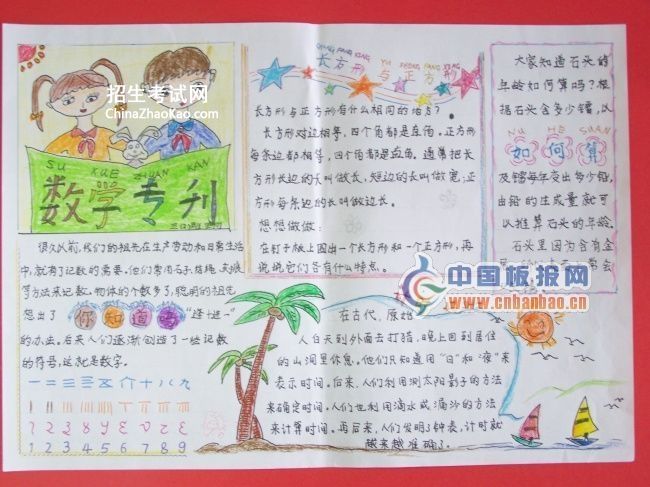 招生考试网
ChinaZhaoKao.com
SU XUE ZHUAN KAN
数学专刊
很久以前,我们的祖先在生产劳动和日常生活
中,就有了记数的需要,他们常用石子,结绳
等方法来记数。物体的个数多了,聪明的祖先
想出了 你知道吗 "逢十进一"
的办法。后来人们逐渐创造了一些记数
的符号,这就是数字。
1 2 3 4 5 6 7 8 9
长方形与正方形
长方形与正方形有什么相同的地方?
长方形对边相等,四个角都是直角,正方形
每条边都相等,四个角都是直角。通常把长
方形长边的长叫做长,短边的长叫做宽;正方
形每条边的长叫做边长。
想想做做:
在钉子板上围出一个长方形和一个正方形,再
说说它们各有什么特点。
大家知道石头的
年龄如何算吗?根
据石头含多少镭,以
RU HE SUAN
如何算
及镭每年变出多少铅,
由铅的生成量就可
以推算石头的年龄。
石头里因为含有金
中国板报网
www.cnbanbao.cn
在古代,原始
人白天到外面去打猎,晚上回到居住
的山洞里休息。他们只知道用"日"和"夜"来
表示时间。后来,人们利用测太阳影子的方法
来确定时间。人们也利用滴水或漏沙的方法
来计算时间。再后来,人们发明了钟表,计时就
越来越准确了。